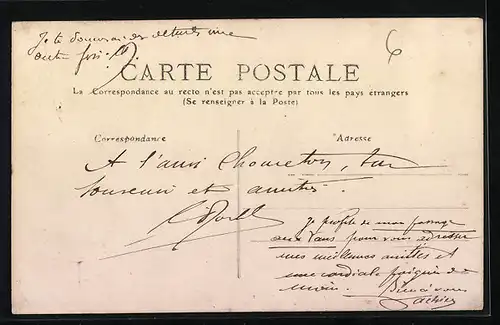 Je te donnerai des détails une
autre fois.
6
CARTE POSTALE
La Correspondance au recto n'est pas acceptée par tous les pays étrangers
(Se renseigner à la Poste)
Correspondance
Adresse
A l'ami Chometon,
souvenir et amitiés.
Je profite de mon passage
aux Vans pour vous adresser
mes meilleures amitiés et
une cordiale poignée de
main. Bien à vous